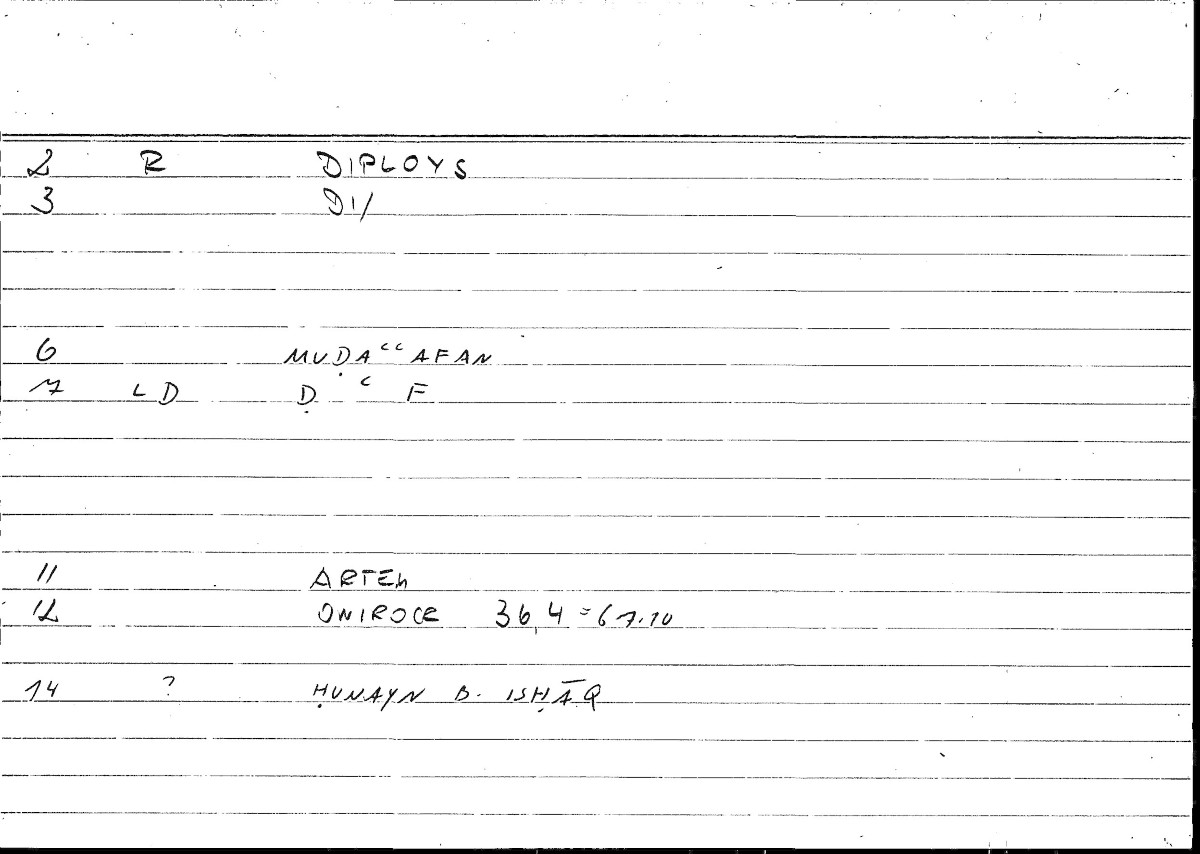 2 R DIPLOYS
3 DI/
6 MUḌAʿʿAFAN
7 LD Ḍ ʿ F
11 ARTEM
12 ONIROCR 36,4 = 67.10
14 ? ḤUNAYN B. ISḤĀQ